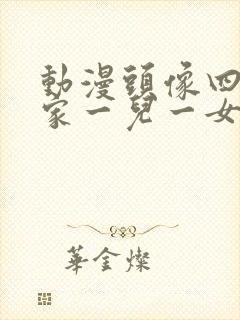 動漫頭像四
家一兒一女
華金燦